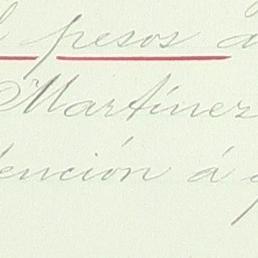 pesos
Martínez
ención á